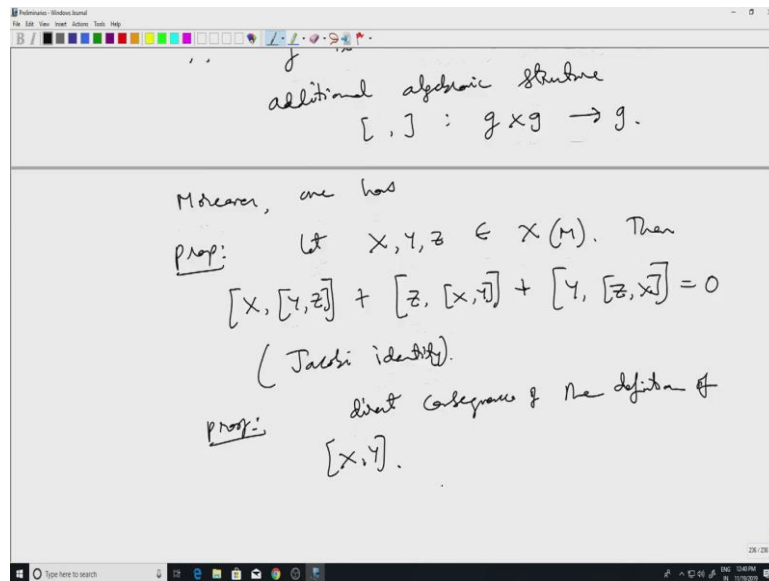 Preliminaries - Windows Journal
File Edit View Insert Actions Tools Help
additional algebraic structure
[ , ] : g × g → g.
Moreover, one has
prop: Let X, Y, Z ∈ X(M). Then
[X, [Y, Z]] + [Z, [X, Y]] + [Y, [Z, X]] = 0
(Jacobi identity).
proof: direct consequence of the definition of
[X, Y].
236 / 236
Type here to search
ENG 12:40 PM
IN 11/19/2019